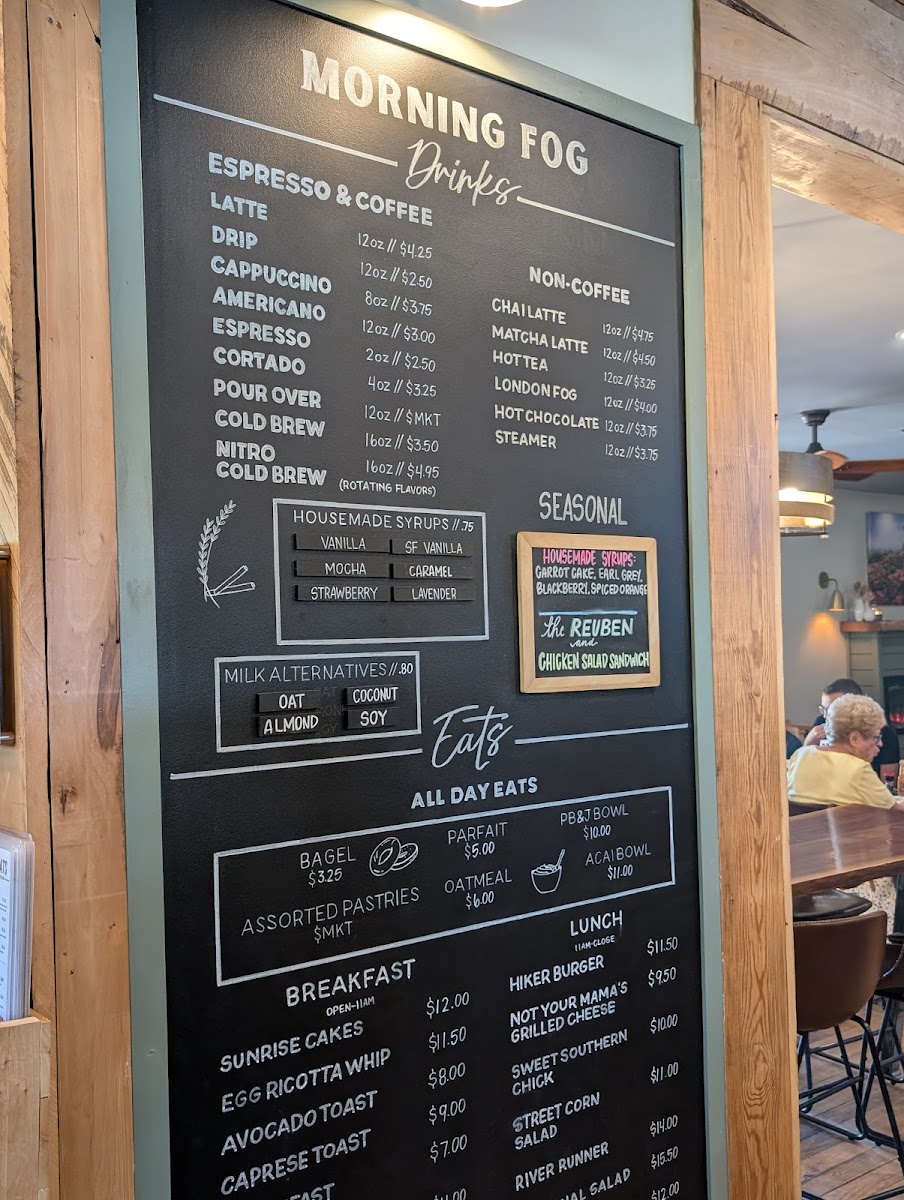 MORNING FOG
Drinks
ESPRESSO & COFFEE
LATTE 12oz // $4.25
DRIP 12oz // $2.50
CAPPUCCINO 8oz // $3.75
AMERICANO 12oz // $3.00
ESPRESSO 2oz // $2.50
CORTADO 4oz // $3.25
POUR OVER 12oz // $MKT
COLD BREW 16oz // $3.50
NITRO
COLD BREW 16oz // $4.95
(ROTATING FLAVORS)
NON-COFFEE
CHAI LATTE 12oz // $4.75
MATCHA LATTE 12oz // $4.50
HOT TEA 12oz // $3.25
LONDON FOG 12oz // $4.00
HOT CHOCOLATE 12oz // $3.75
STEAMER 12oz // $3.75
HOUSEMADE SYRUPS // .75
VANILLA SF VANILLA
MOCHA CARAMEL
STRAWBERRY LAVENDER
SEASONAL
HOUSEMADE SYRUPS:
CARROT CAKE, EARL GREY,
BLACKBERRY, SPICED ORANGE
the REUBEN
and
CHICKEN SALAD SANDWICH
MILK ALTERNATIVES // .80
OAT COCONUT
ALMOND SOY
Eats
ALL DAY EATS
BAGEL
$3.25
PARFAIT
$5.00
PB&J BOWL
$10.00
ASSORTED PASTRIES
$MKT
OATMEAL
$6.00
ACAI BOWL
$11.00
BREAKFAST
OPEN-11AM
SUNRISE CAKES $12.00
EGG RICOTTA WHIP $11.50
AVOCADO TOAST $8.00
CAPRESE TOAST $9.00
$7.00
LUNCH
11AM-CLOSE
HIKER BURGER $11.50
NOT YOUR MAMA'S $9.50
GRILLED CHEESE
SWEET SOUTHERN $10.00
CHICK
STREET CORN $11.00
SALAD
RIVER RUNNER $14.00
SALAD $15.50
$12.00